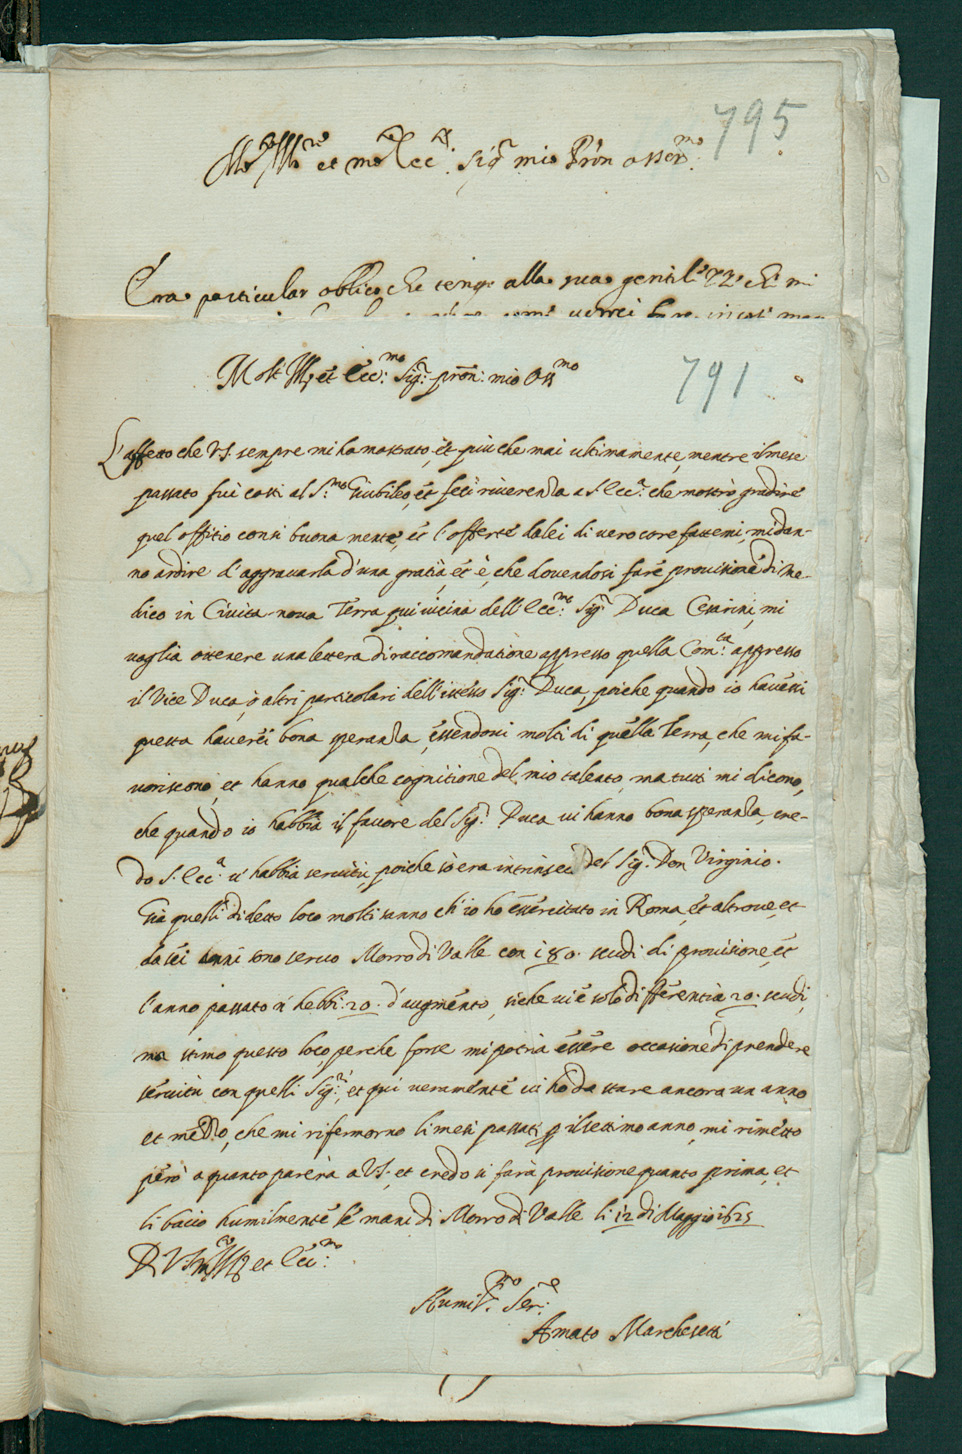 795
et sig.r mio Pron osser.mo
Era particular obligo che tengo alla sua gentil.za ch' mi
Molt' Ill. et Ecc.mo Sig.r pron: mio Oss.mo
791
L'affetto che V.S. sempre mi ha mostrato, et più che mai ultimamente, mentre il mese
passato fui costì al S.mo Giubileo, et feci riverenza a S. Ecc.a che mostrò gradire
quel offitio con sì buona mente, et l'offerte dalei di vero core fattemi, mi dan-
no ardire d'aggravarla d'una gratia, et è, che dovendosi fare provisione di me-
dico in Civita nova Terra qui vicina dell'Ecc.mo Sig.r Duca Cesarini, mi
voglia ottenere una lettera di raccomandatione appresso quella Com.ta appresso
il Vice Duca, ò altri particolari dell'istesso Sig.r Duca, poiche quando io havessi
questa haverei bona speranza, essendovi molti di quella Terra, che mi fa-
voriscono, et hanno qualche cognitione del mio talento, ma tutti mi dicono,
che quando io habbia il favore del Sig.r Duca vi hanno bona speranza, cre-
do S. Ecc.a v'habbia servitù, poiche sò era intrinseco del Sig.r Don Virginio.
Già quelli di detto loco molti sanno ch'io ho essercitato in Roma, et altrove, et
da sei anni sono servo Morro di Valle con 180. scudi di provisione, et
l'anno passato n'hebbi .20. d'augmento, siche vi è solo differentia 20. scudi,
ma stimo questo loco, perche forse mi potria essere occasione di prendere
servitù con quelli Sig.ri, et qui veramente vi ho da stare ancora un anno
et mezzo, che mi rifermorno li mesi passati p il settimo anno, mi rimetto
però a quanto parerà a V.S. et credo si farà provisione quanto prima, et
li bacio humilmente le mani di Morro di Valle li 12 di Maggio 1625
D V.S. m.to Ill. et Ecc.ma
Humil.mo Ser.e
Amato Marchesetti